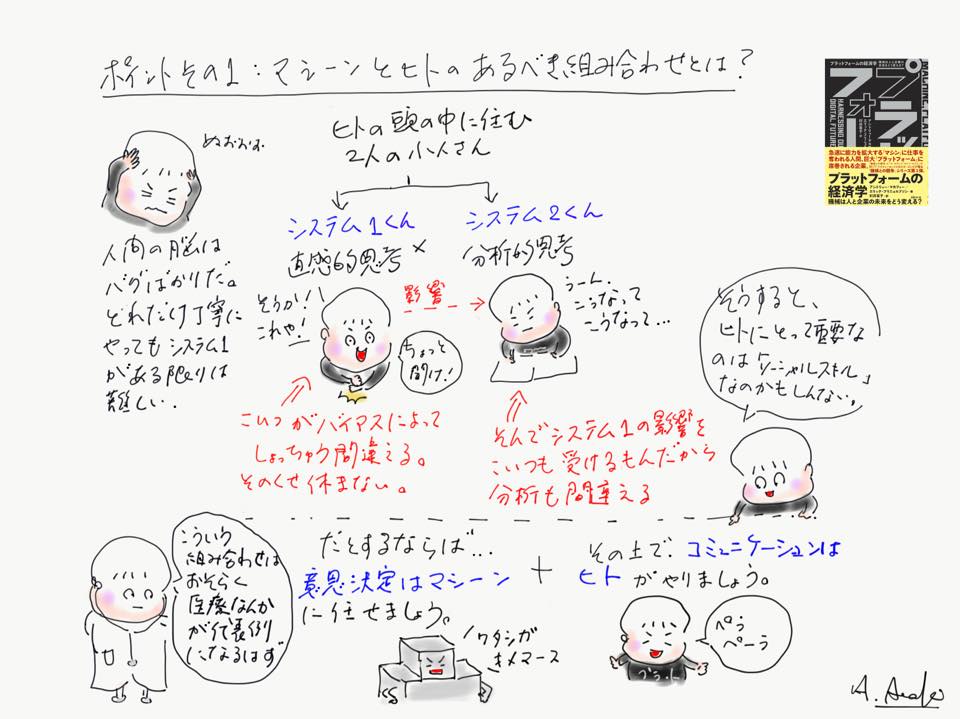 ポイントその1：マシーンとヒトのあるべき組み合わせとは？
ヒトの頭の中に住む
2人の小人さん
ぬおおお
人間の脳は
バグばかりだ。
どれだけ丁寧に
やってもシステム1
がある限りは
難しい．
システム1くん
直感的思考
×
システム2くん
分析的思考
そうか！
これや！
影響
ちょっと
聞け！
うーん．
こうなって
こうなって…
こいつがバイアスによって
しょっちゅう間違える。
そのくせ休まない。
そんでシステム1の影響を
こいつも受けるもんだから
分析も間違える
そうすると、
ヒトにとって重要な
のは「ソーシャルスキル」
なのかもしんない。
プラットフォーム
プラットフォームの経済学
HARNESSING OUR
DIGITAL FUTURE
急速に能力を拡大する「マシン」に仕事を
奪われる人間、巨大「プラットフォーム」に
席巻される企業。
プラットフォームの
経済学
アンドリュー・マカフィー
エリック・ブリニョルフソン 著
村井章子 訳
機械は人と企業の未来をどう変える？
こういう
組み合わせは
おそらく
医療なんか
が代表例
になるはず
だとするならば…
意思決定はマシーン
に任せましょう。
+
その上で、コミュニケーションは
ヒトがやりましょう。
ワタシガ
キメマース
ぺら
ぺーら
プラット